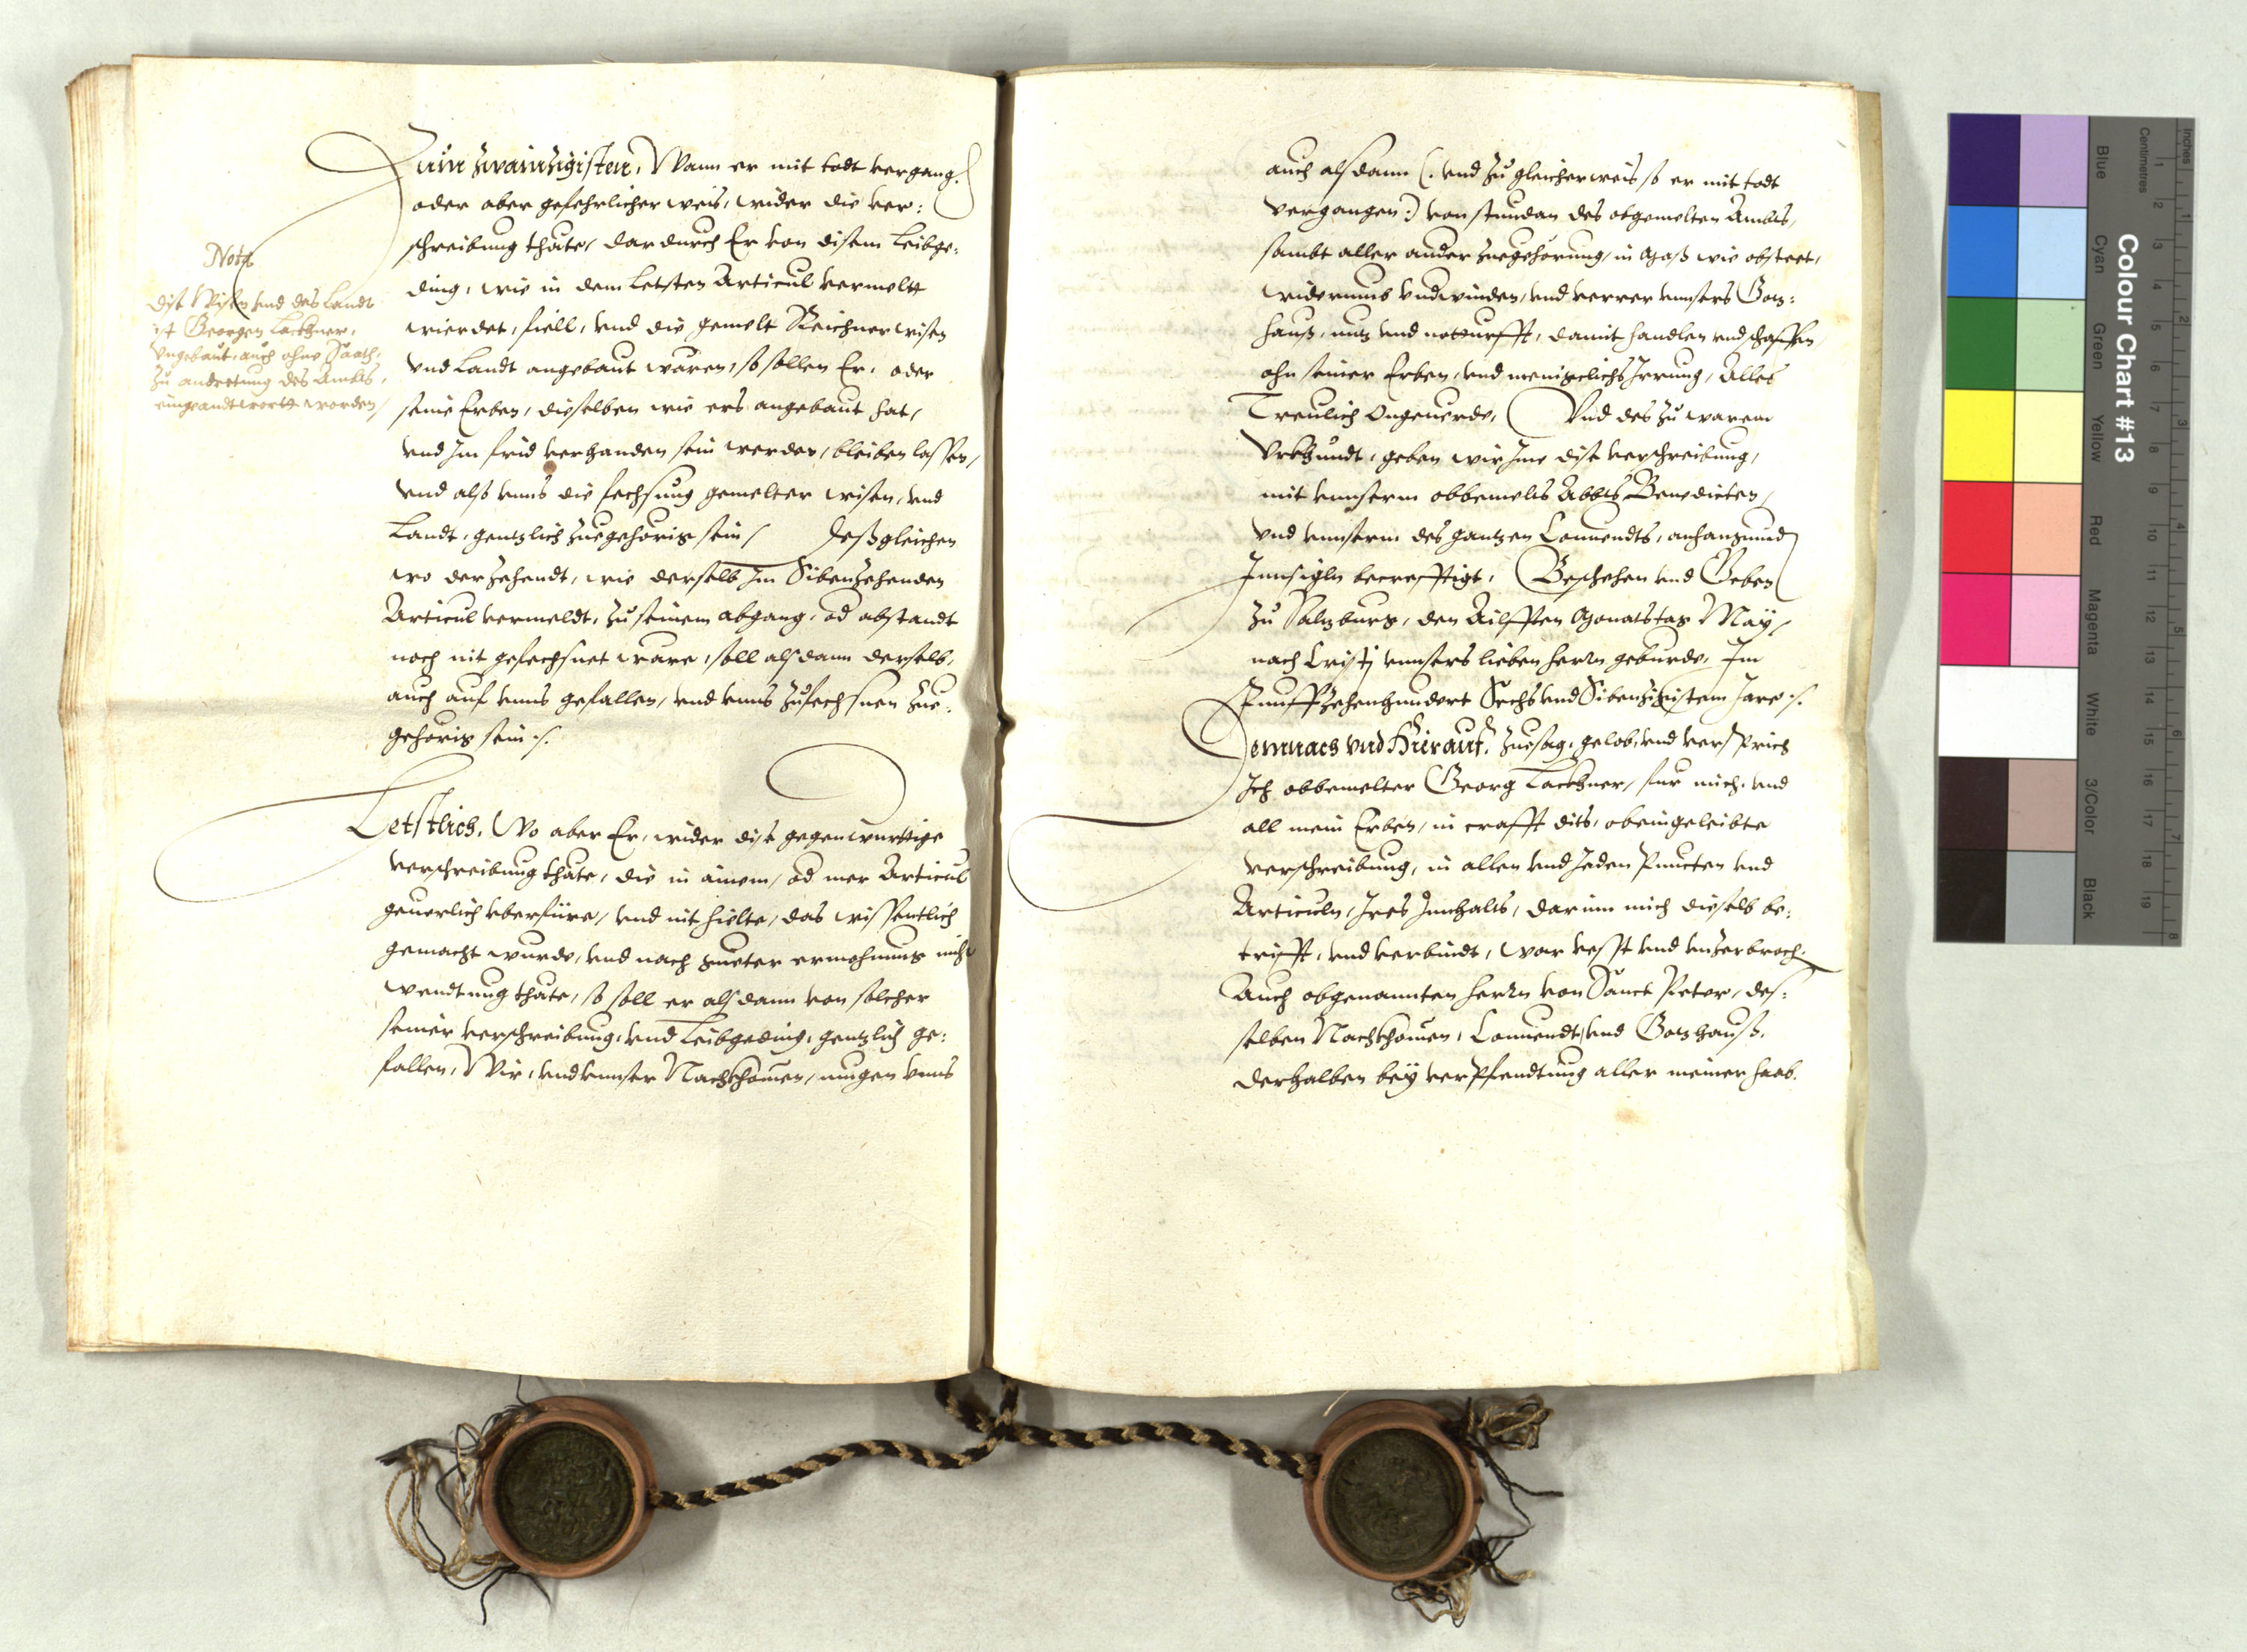 Zum zwainzigisten, Wann er mit todt vergang.
oder aber gefehrlicher weis, wider die ver:
schreibung thäte, dardurch Er von disem Leibge:
ding, wie in dem Letsten Articul vermelt
wierdet, fiell, vnd die gemelt Reichnerwisen
vnd Landt angebaut wären, so sollen Er, oder
seine Erben, dieselben wie ers angebaut hat,
vnd Im frid verhanden sein werden, bleiben lassen,
vnd also vnns die fechsung gemelter wisen, vnd
Landt, gentzlich zuegehörig sein, Deßgleichen
wo der zehendt, wie derselb Im Sibenzehenden
Articul vermeldt, zu seinem abgang, od abstandt
noch nit gefechsnet wäre, soll alsdann derselb,
auch auf vnns gefallen, vnd vnns zufechsnen zue:
gehörig sein /.
Nota
Dise Wisen vnd des Landt
ist Georgen Lackhner,
vngebaut, auch ohne Saath,
zu andrettung des Ambts,
eingeandtwortt worden,
Letstlich, Wo aber Er, wider dise gegenwürttige
verschreibung thäte, die in ainem, od mer Articul
geuerlich vberfüre, vnd nit hielte, das wissentlich
gemacht wurde, vnd nach gueter ermohnung nicht
wendtung thäte, so soll er alsdann von solcher
seiner verschreibung, vnd Leibgeding, gentzlich ge:
fallen, Wir, vnd vnnser Nachkhomen, mugen vnns
auch alsdann (: vnd zu gleicherweis so er mit todt
vergangen :) von stundan des obgemelten Ambts,
sambt aller ander zuegehörung, in Maß wie obsteet,
widerumb vndwinden, vnd verrer vnnsers Gotz:
hauß, nuz vnd notturfft, damit handlen vnd schaffen
ohn seiner Erben, vnd menigclichs Irrung, Alles
Treulich Ongeuerde, Vnd des zu warem
Vrkhundt, geben wir Ime dise verschreibung,
mit vnnserm obbemelts Abbts Benedicten,
vnd vnnserm des gantzen Conuendts, anhangund
Innsigln becrefftigt, Geschehen vnd Geben
zu Salzburg, den Ailfften Monatstag May,
nach Cristj vnnsers lieben herrn geburde, Im
Funffzehenhundert Sechs vnd Sibenzigistem Jare /.
Demnach vnd Hierauf, zuesag, gelob, vnd versprich
Ich obbemelter Georg Lackhner, fur mich, vnd
all mein Erben, in crafft dits, obeingeleibte
verschreibung, in allen vnd Jeden Puncten vnd
Articuln, Ires Innhalts, darinn mich dieselb be:
trifft, vnd verbindt, war vesst vnd vnzerbroch.
Auch obgenannten herrn von Sanct Peter, des:
selben Nachkhomen, Conuendt, vnd Gotzhauß,
derhalben bey verpfendtung aller meiner haab.
Colour Chart #13
Blue
Cyan
Green
Yellow
Red
Magenta
White
3/Color
Black
Centimetres
Inches
1
2
3
4
5
6
7
8
9
10
11
12
13
14
15
16
17
18
19
1
2
3
4
5
6
7
8